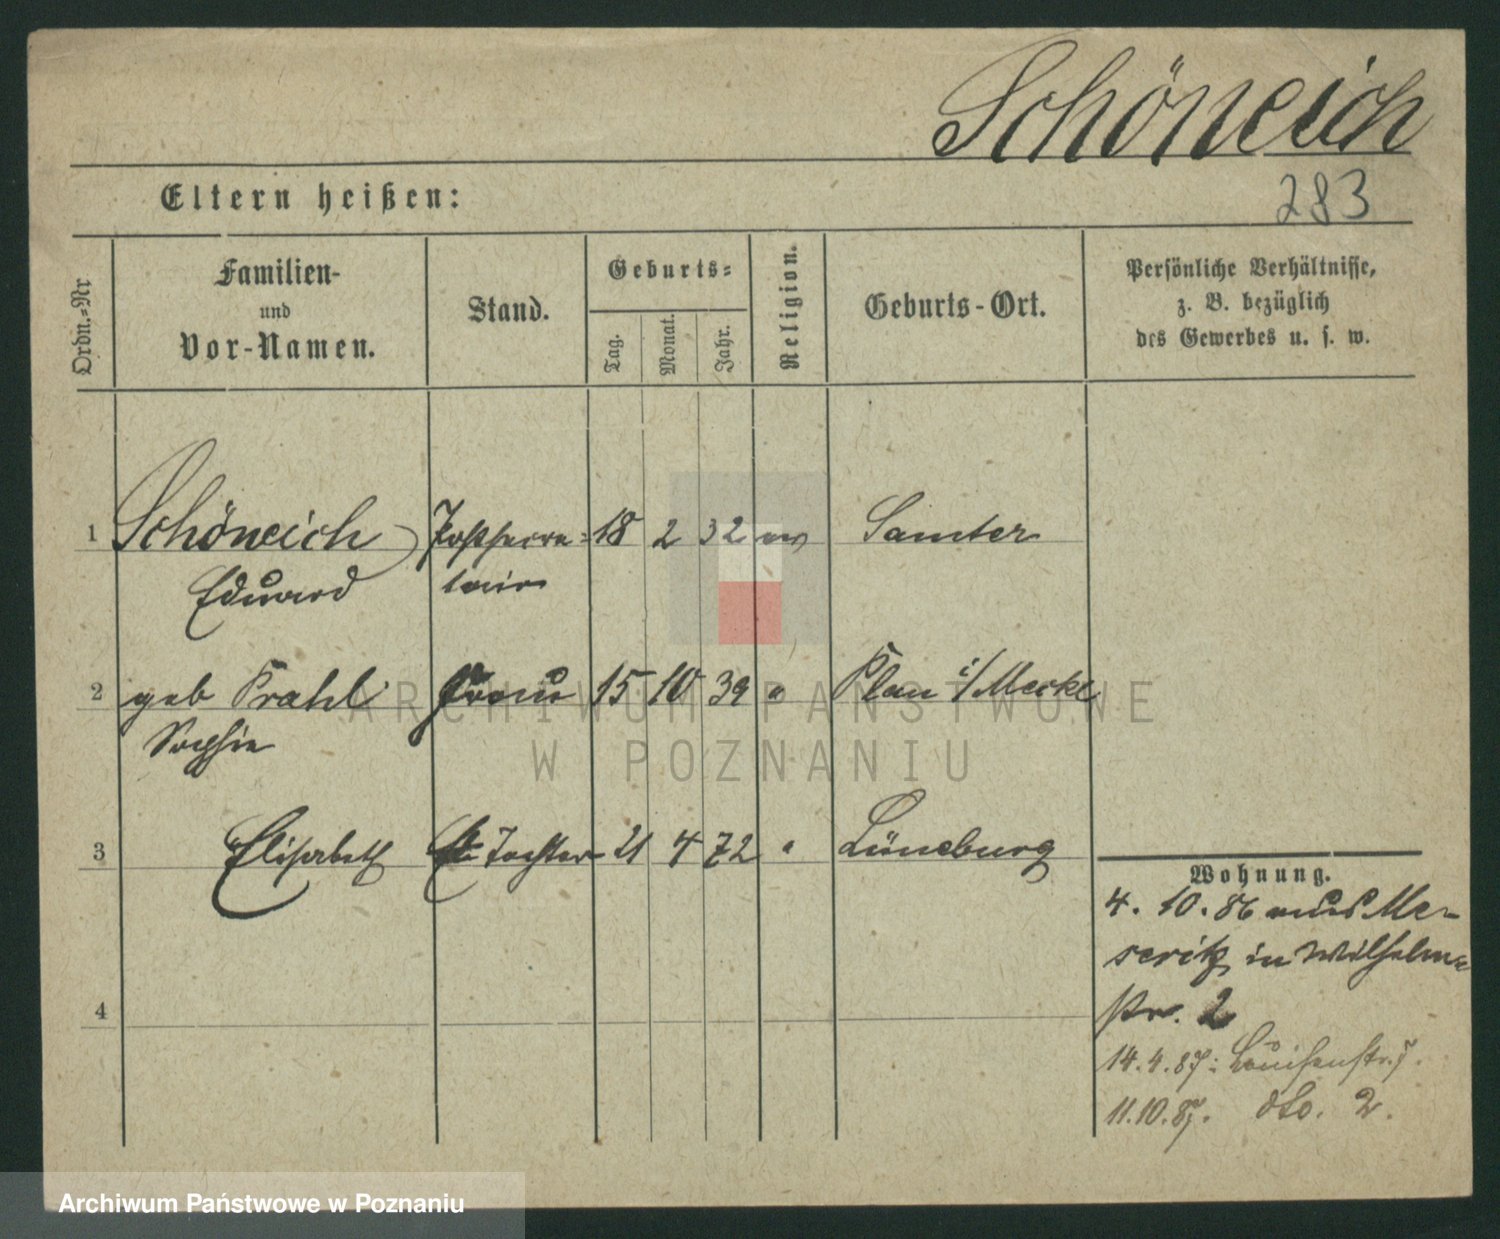 Schöneich
Eltern heißen:
283
Ordn.=Nr
Familien-
und
Vor-Namen.
Stand.
Geburts=
Tag.
Monat.
Jahr.
Religion.
Geburts-Ort.
Persönliche Verhältnisse,
z. B. bezüglich
des Gewerbes u. s. w.
1 Schöneich Postsecre= 18 2 32 ev Samter
Eduard tair
2 geb Prahl Frau 15 10 39 " Plau i/Meckl
Sophie
3 Elisabeth Tochter 21 4 72 " Lüneburg
4
Wohnung.
4. 10. 86 aus Me-
seritz in Wilhelms
str. 2
14.4.87: Louisenstr.
11.10.87. dto. 2.
ARCHIWUM PAŃSTWOWE
W POZNANIU
Archiwum Państwowe w Poznaniu